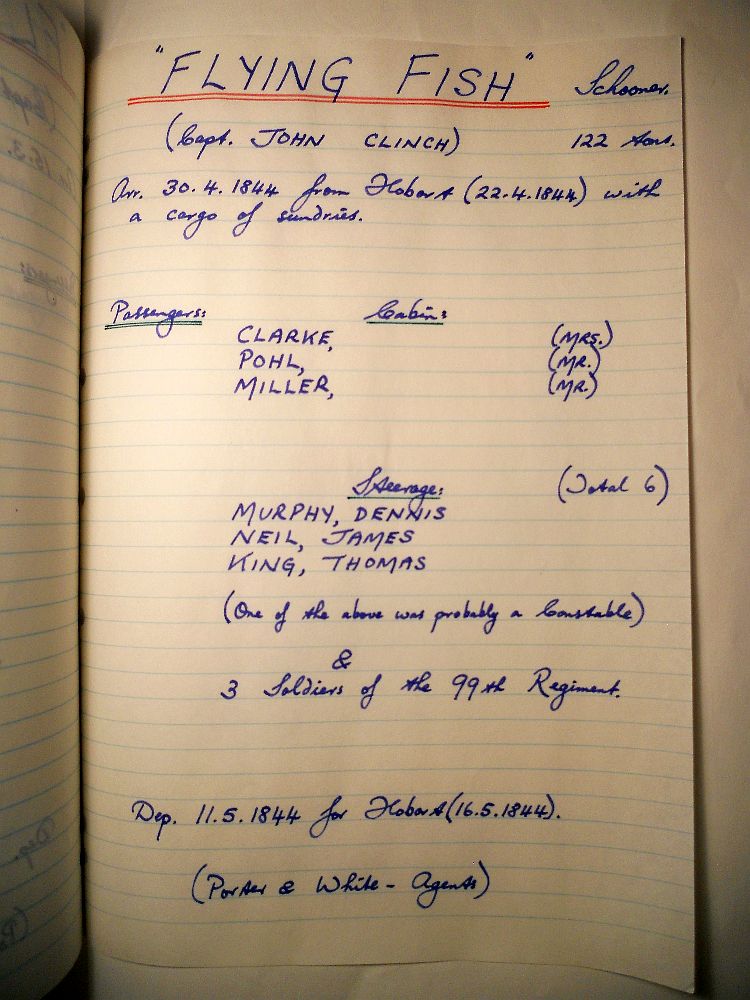 "FLYING FISH" Schooner.
(Capt. JOHN CLINCH) 122 tons.
Arr. 30.4.1844 from Hobart (22.4.1844) with
a cargo of sundries.
Passengers: Cabin:
CLARKE, (MRS.)
POHL, (MR.)
MILLER, (MR.)
Steerage: (Total 6)
MURPHY, DENNIS
NEIL, JAMES
KING, THOMAS
(One of the above was probably a Constable)
&
3 Soldiers of the 99th Regiment.
Dep. 11.5.1844 for Hobart (16.5.1844).
(Porter & White - Agents)